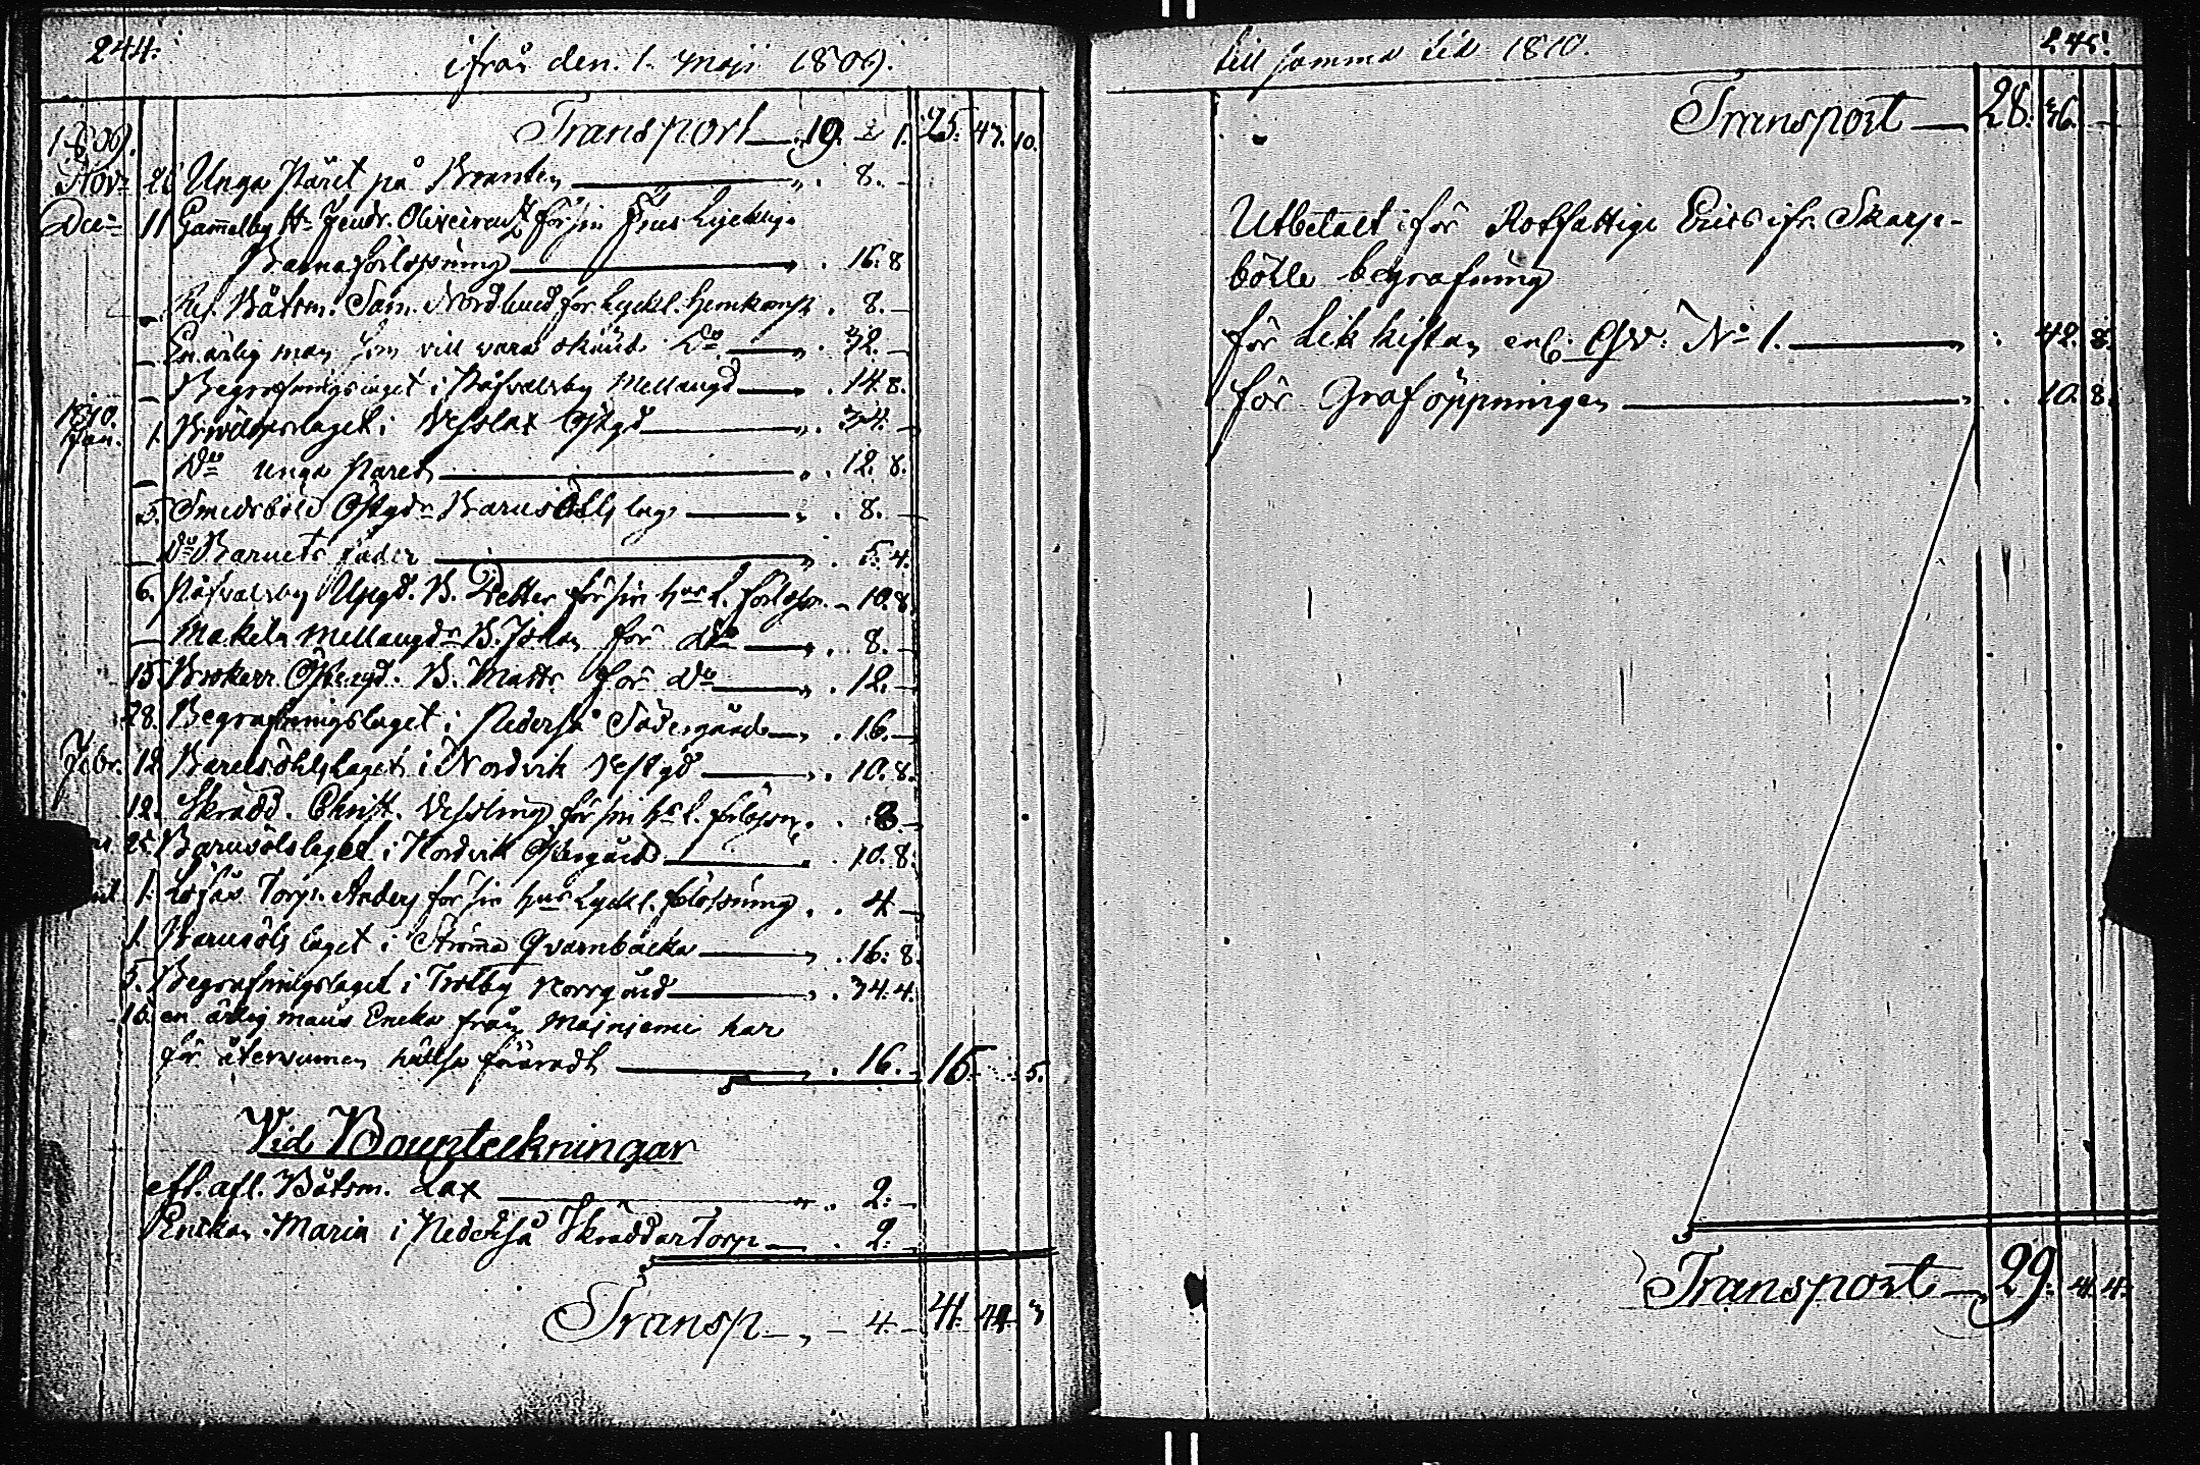 244.
ifrån den 1. Maji 1809.
Transport 19. 2 1. 25. 47. 10.
1809.
Novr 26 Unga Paret på Branten 8. –
Decr 11 Gammelby Hr Fendr. för sin Frus Lyckliga
Barnaförlossning 16. 8
Båtsm. Sam. Nordlund för Lyckl. hemkomst 8. –
En ärlig man som vill vara okänd 32. –
Begrafningslaget i Påfvalsby Mellangd 14. 8.
1810.
Jan. 1. Bröllopslaget i Vesslax Östgd 34. –
Do unga Paret 12. 8.
5. Smedsböle Östgds Barnsöhlslag 8. –
Do Barnets fader 5. 4.
6. Påfvalsby Uppgd. B. Petter för sin hus. L. förlossn. 10. 8.
Makila Mellangds B. Johan för do 8. –
15. Brokärr Östergd. B. Matts för do 12. –
28. Begrafningslaget i Pederså Södergård 16. –
Febr. 12. Barnsöhlslaget i Nordvik Vestgd 10. 8.
12. Skrädd. Christ. Vessling för sin hs. L. förlossn. 8. –
25. Barnsölslaget i Nordvik Östergård 10. 8.
1. Löfås Torp. Anders för sin hus Lyckl. förlossning 4 –
1. Barnsöls laget i Strömma Qvarnbacka 16. 8.
5. Begrafningslaget i Tolby Norrgård 34. 4.
16. en ärlig mans Encka från Majniemi har
för återvunnen hälsa föräradt 16. – 15. 5.
Vid Bouptekningar
eft. afl. Båtsm. Lax 2. –
Enckan Maria i Pederså Skräddar Torp 2. –
Transp. 4. – 41. 44. 3
till samma tid 1810.
245.
Transport 28. 36. –
Utbetalt för Rotfattige Erics ifr. Skarp-
böle begrafning
för Likkistan enl. Qv. No 1. 42. 8.
för Graföppningen 10. 8.
Transport 29. 41. 4.